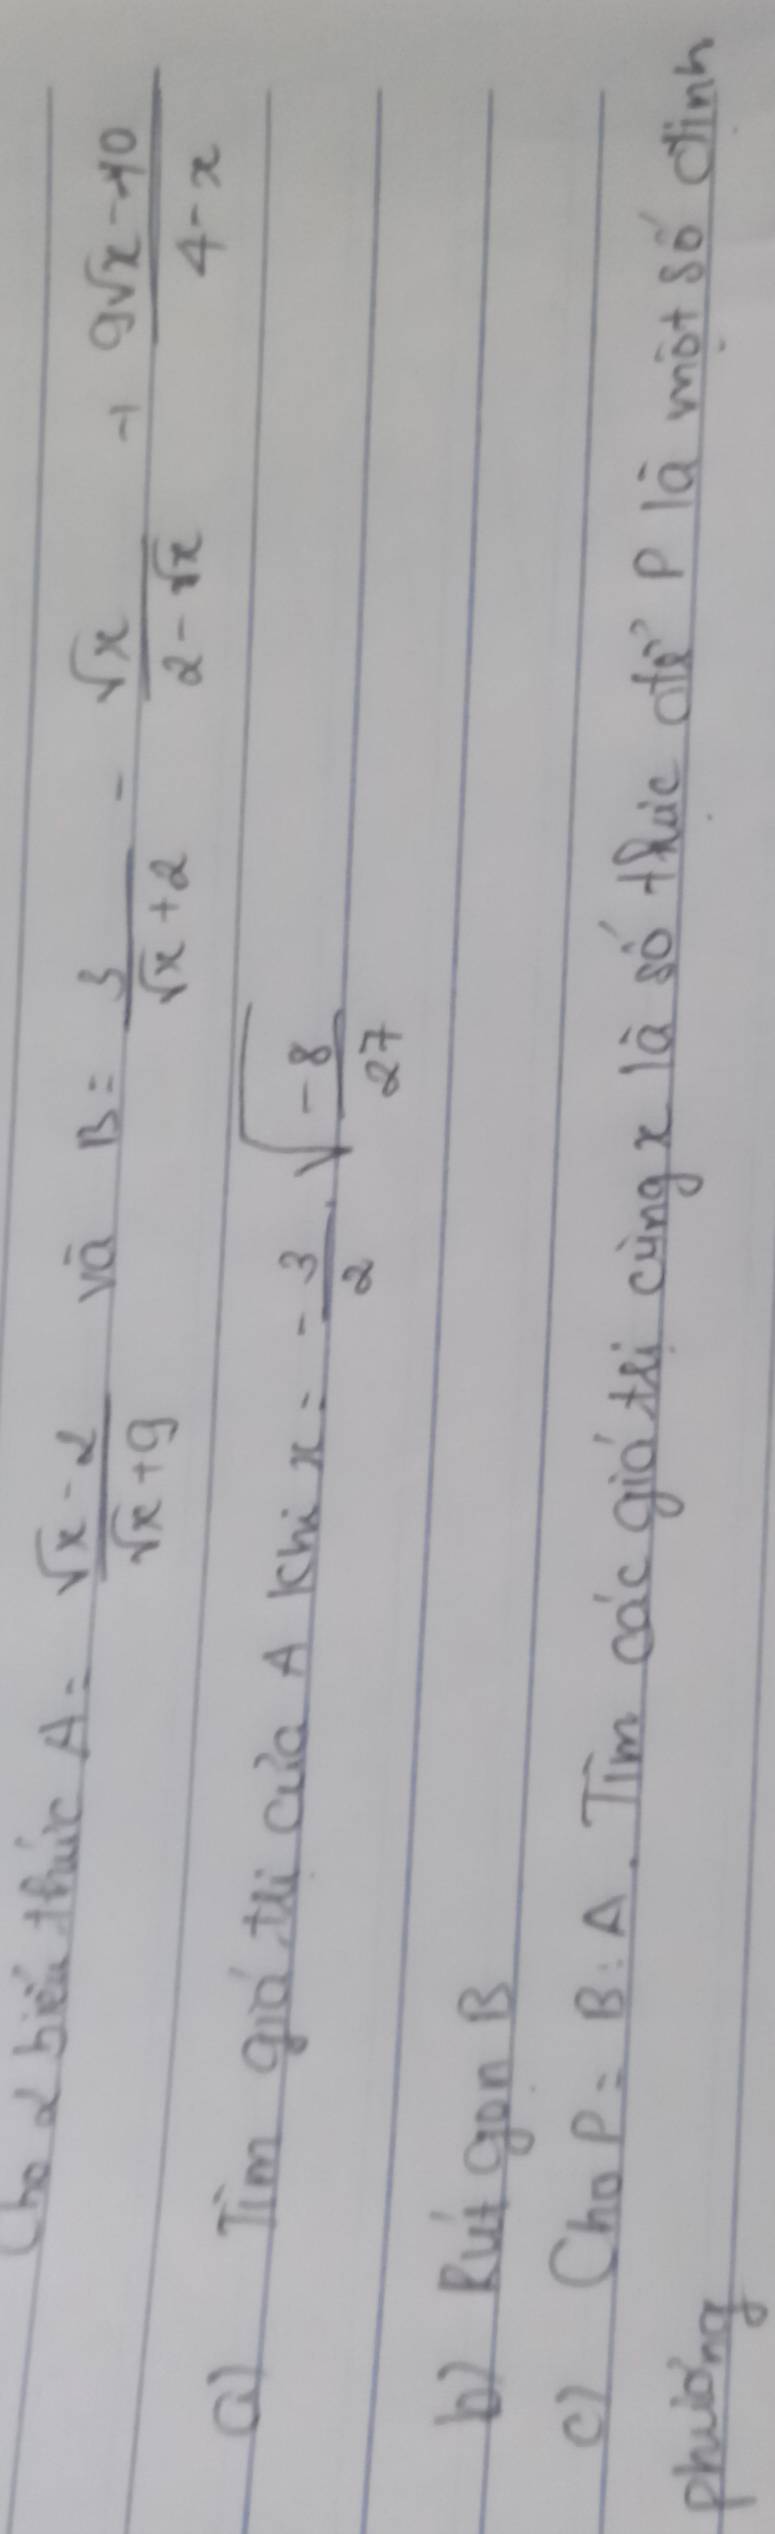 Cho 2 biểu thức A = \frac{\sqrt{x} - 2}{\sqrt{x} + 9} và B = \frac{3}{\sqrt{x} + 2} - \frac{\sqrt{x}}{2 - \sqrt{x}} + \frac{9\sqrt{x} - 10}{4 - x}
a) Tìm giá trị của A khi x = - \frac{3}{2} . \sqrt{\frac{-8}{27}}
b) Rút gọn B
c) Cho P = B : A . Tìm các giá trị cùng x là số thức để P là một số đinh
phương